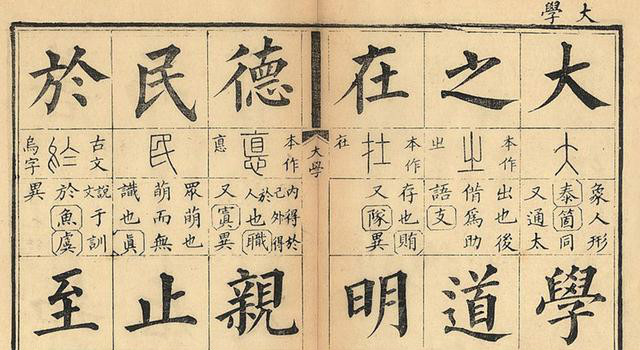 大學
大
大
象人形
泰箇同
又通太
學
之
本作
㞢
㞢
出也後
偕爲助
語支
道
在
本作
在
存也賄
又隊異
明
大學
德
本作
悳
悳
內得於
己外得
於人也職
又寘異
親
民
民
眾萌也
萌而無
識也眞
止
於
古文
烏字
說文于訓
於魚虞
異
至